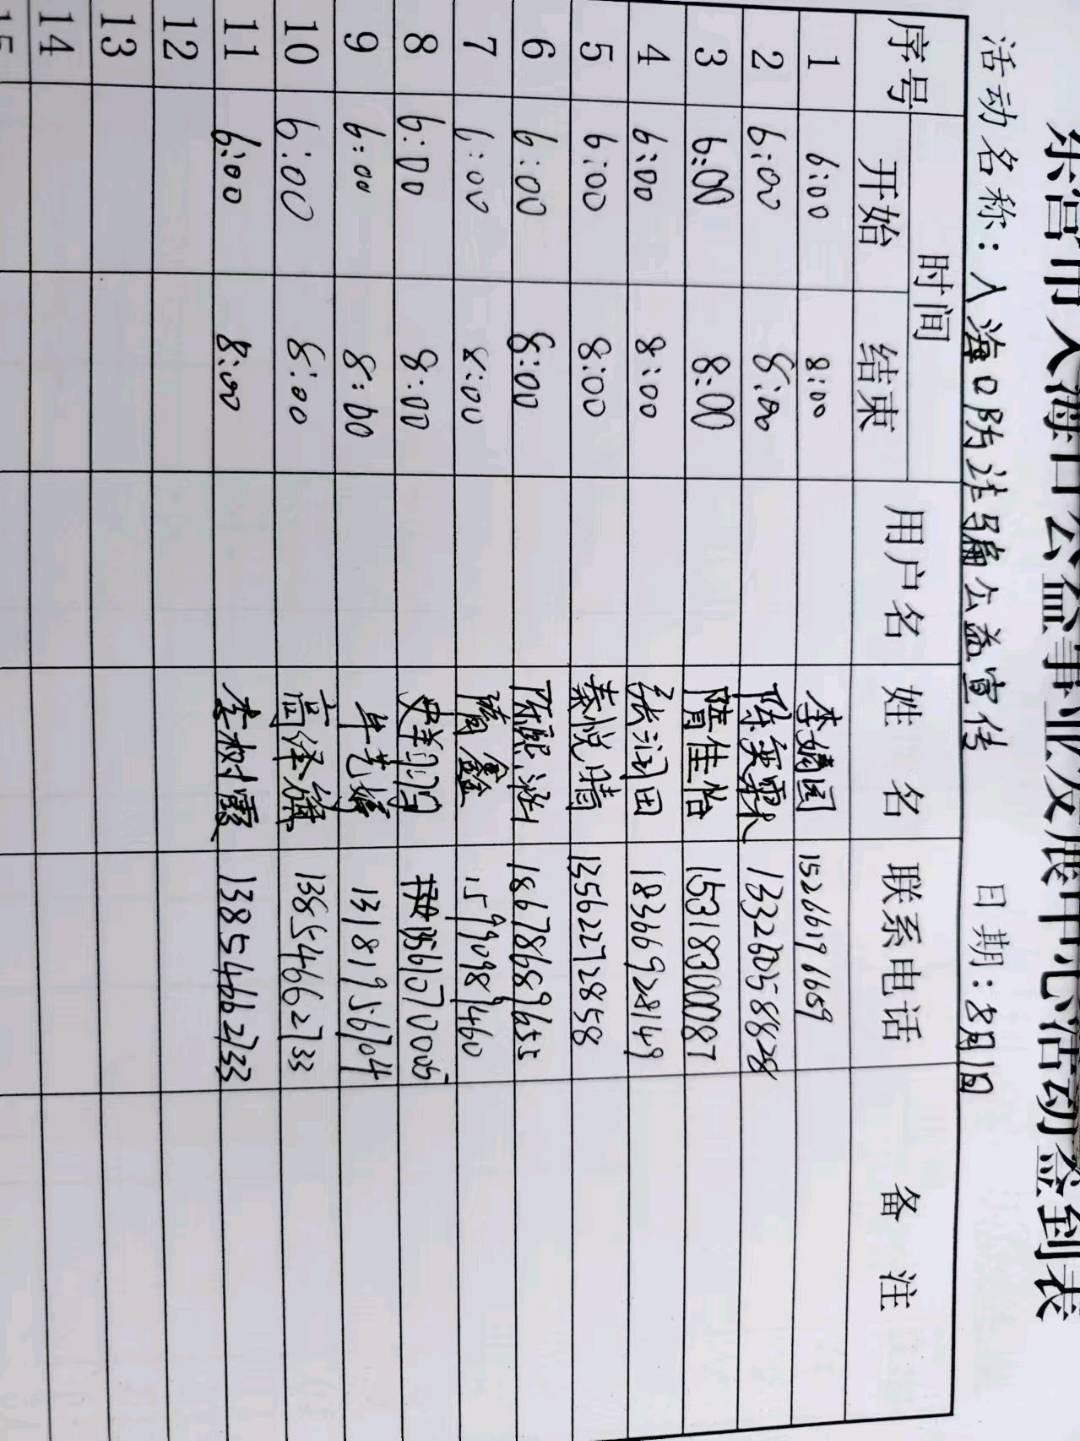 东营市入海口公益事业发展中心活动签到表
活动名称：入海口防诈骗公益宣传 日期：8月1日
序号 时间 用户名 姓名 联系电话 备注
开始 结束
1 6:00 8:00 李嫡园 15266196659
2 6:00 8:00 陈奕霖 13326058828
3 6:00 8:00 隋佳怡 15318300087
4 6:00 8:00 张润田 18366928149
5 6:00 8:00 秦悦晴 13562272858
6 6:00 8:00 陈熙泓 18678689655
7 6:00 8:00 隋鑫 15990989460
8 6:00 8:00
9 6:00 8:00 牟艺婷 13181956704
10 6:00 8:00 高绎旗 13854662733
11 6:00 8:00 李树霞 13854662733
12
13
14
15